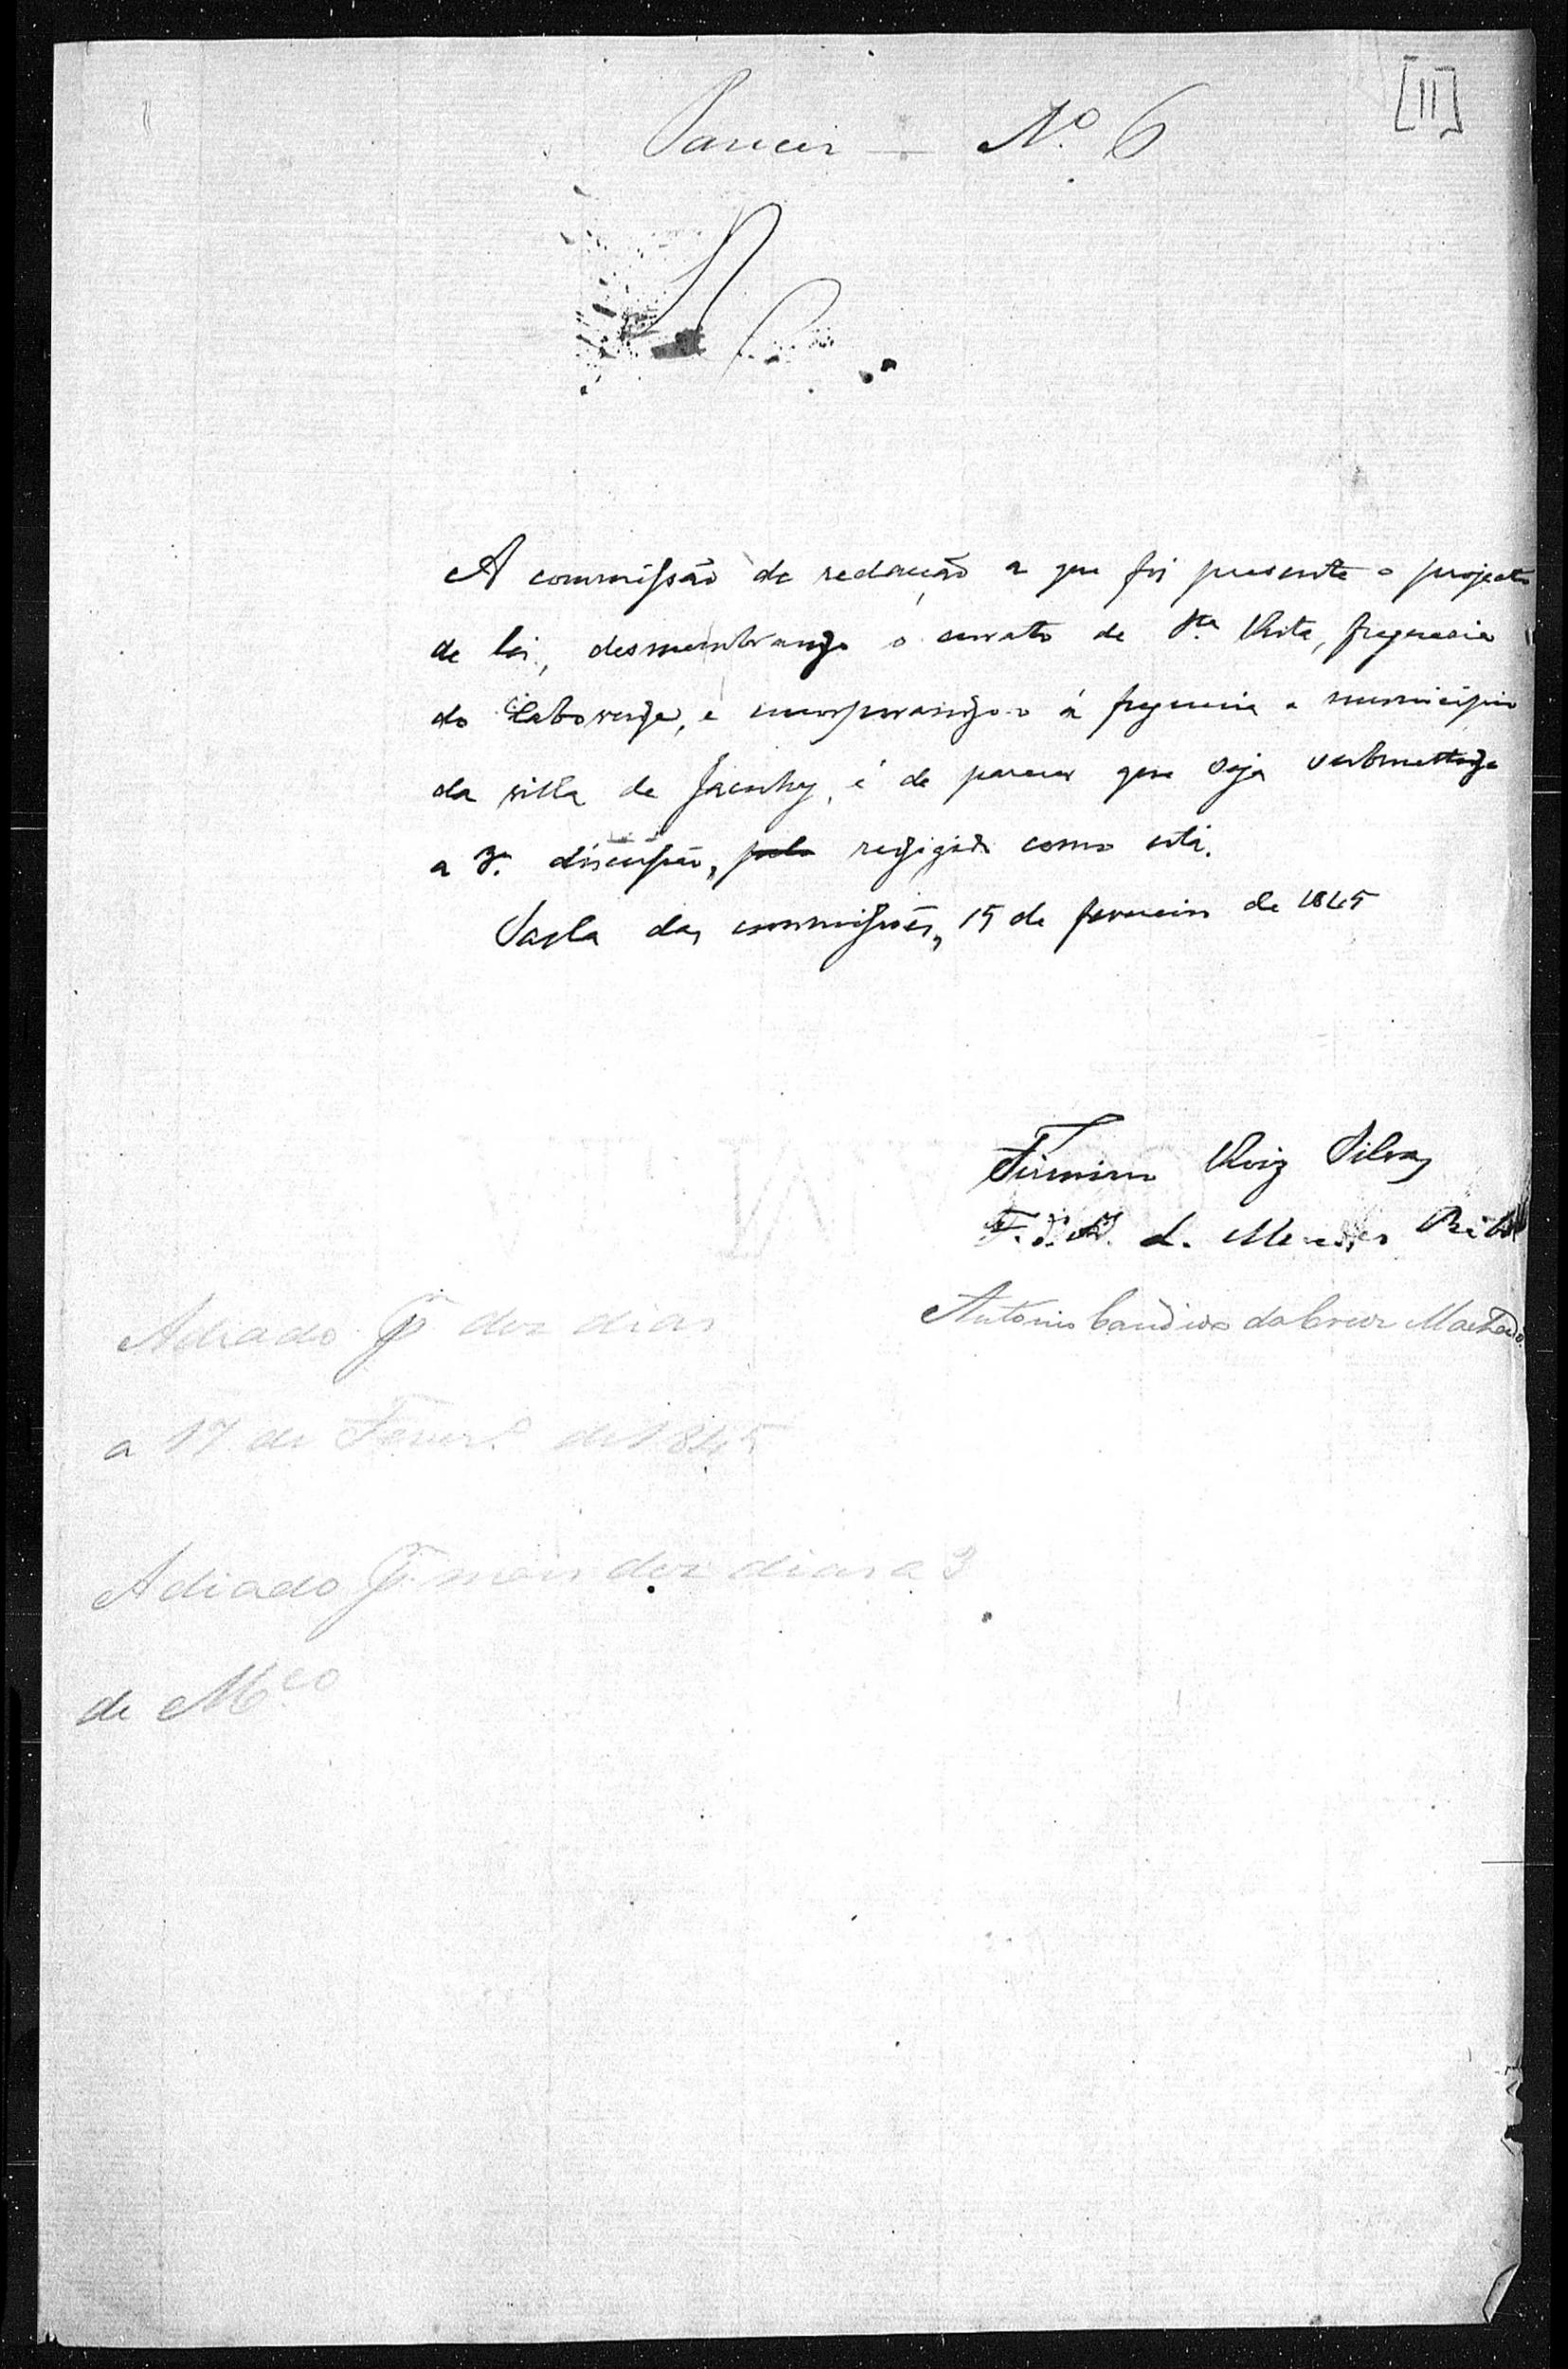 [11]
Parecer — Nº 6
A commissão de redacção a que foi presente o projecto
de lei, desmembrando o curato de Sta Rita, freguesia
do Cabo verde, e encorporando-o á freguesia e municipio
da villa de Jacuhy, é de parecer que seja submettido
a 3ª discussão, redigido como está.
Salla das commissões, 15 de fevereiro de 1845
Firmino Roiz Silva
F. de L. Menezes
Antonio Candido da Cruz Machado
Adiado pr dez dias
a 17 de Fever.º de 1845
Adiado pr mais dez dias a 3
de Mco